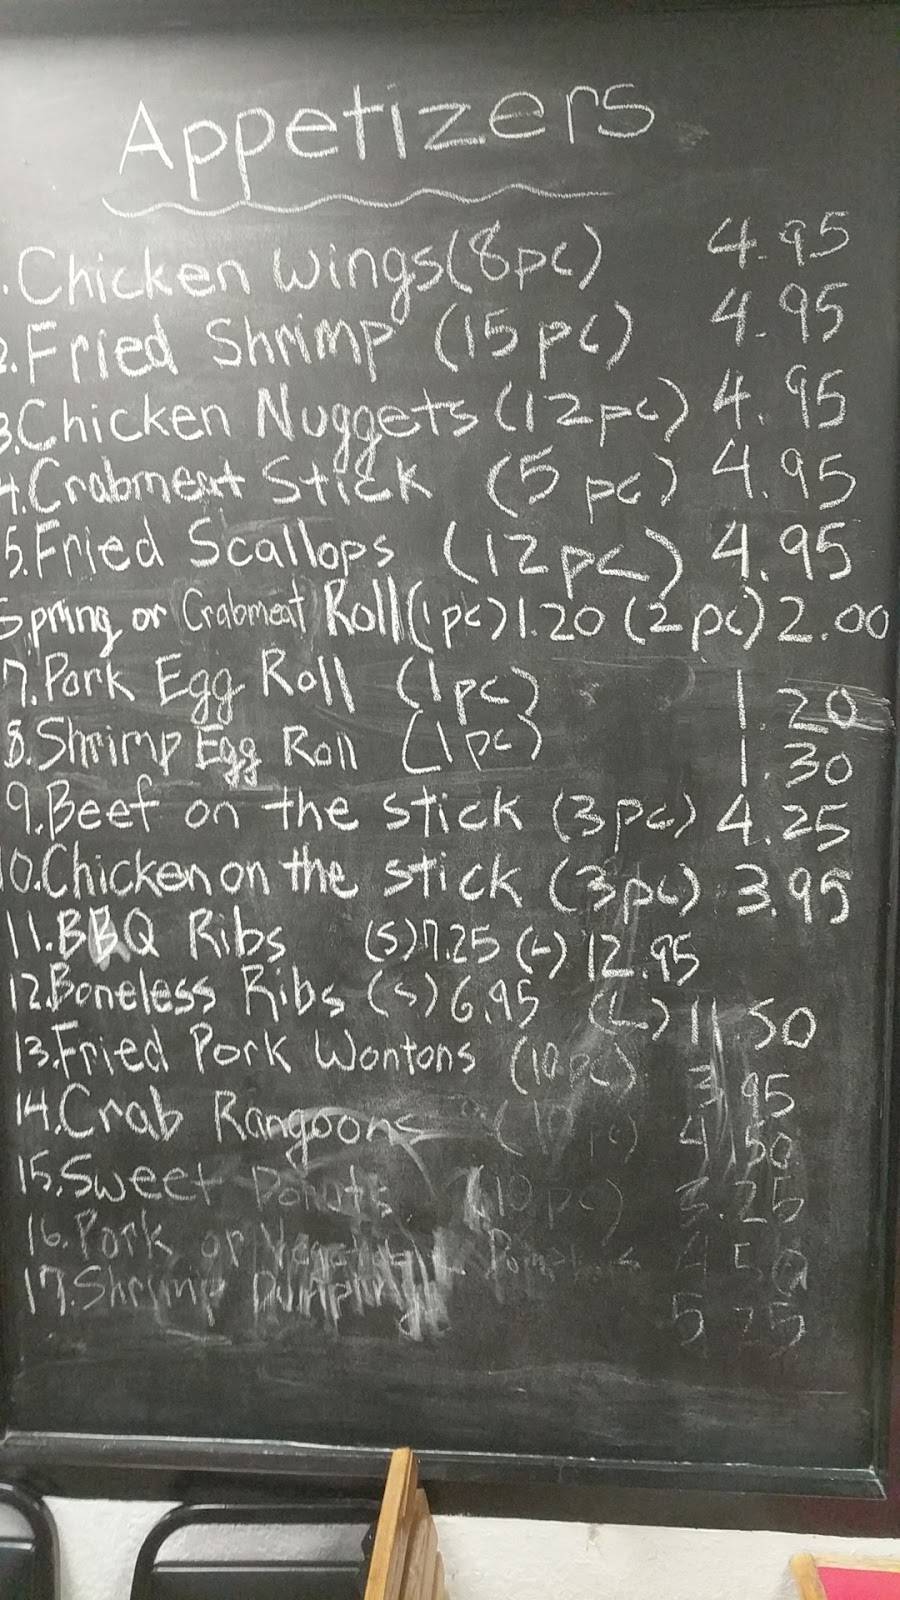 Appetizers
. Chicken Wings (8pc) 4.95
2. Fried Shrimp (15pc) 4.95
3. Chicken Nuggets (12pc) 4.95
4. Crabmeat Stick (5 pc) 4.95
5. Fried Scallops (12pc) 4.95
Spring or Crabmeat Roll (1pc) 1.20 (2pc) 2.00
7. Pork Egg Roll (1pc) 1.20
8. Shrimp Egg Roll (1pc) 1.30
9. Beef on the stick (3pc) 4.25
10. Chicken on the stick (3pc) 3.95
11. BBQ Ribs (S) 7.25 (L) 12.95
12. Boneless Ribs (S) 6.95 (L) 11.50
13. Fried Pork Wontons (10pc) 3.95
14. Crab Rangoons (10pc) 4.50
15. Sweet Donuts (10pc) 3.25
16. Pork or Vegetable 4.50
17. Shrimp Dumpling 5.25